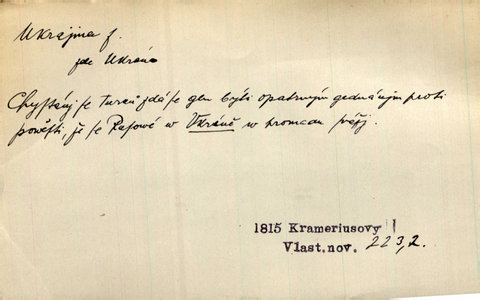 Ukrajina f.
zde Ukrána
Chyſtánj ſe Turců zdá ſe gen býti opatrným gednánjm proti
powěſti, že ſe Ruſowé w Ukráně w hromadu ſtěžj.
1815 Krameriusovy
Vlast.nov. 223,2.